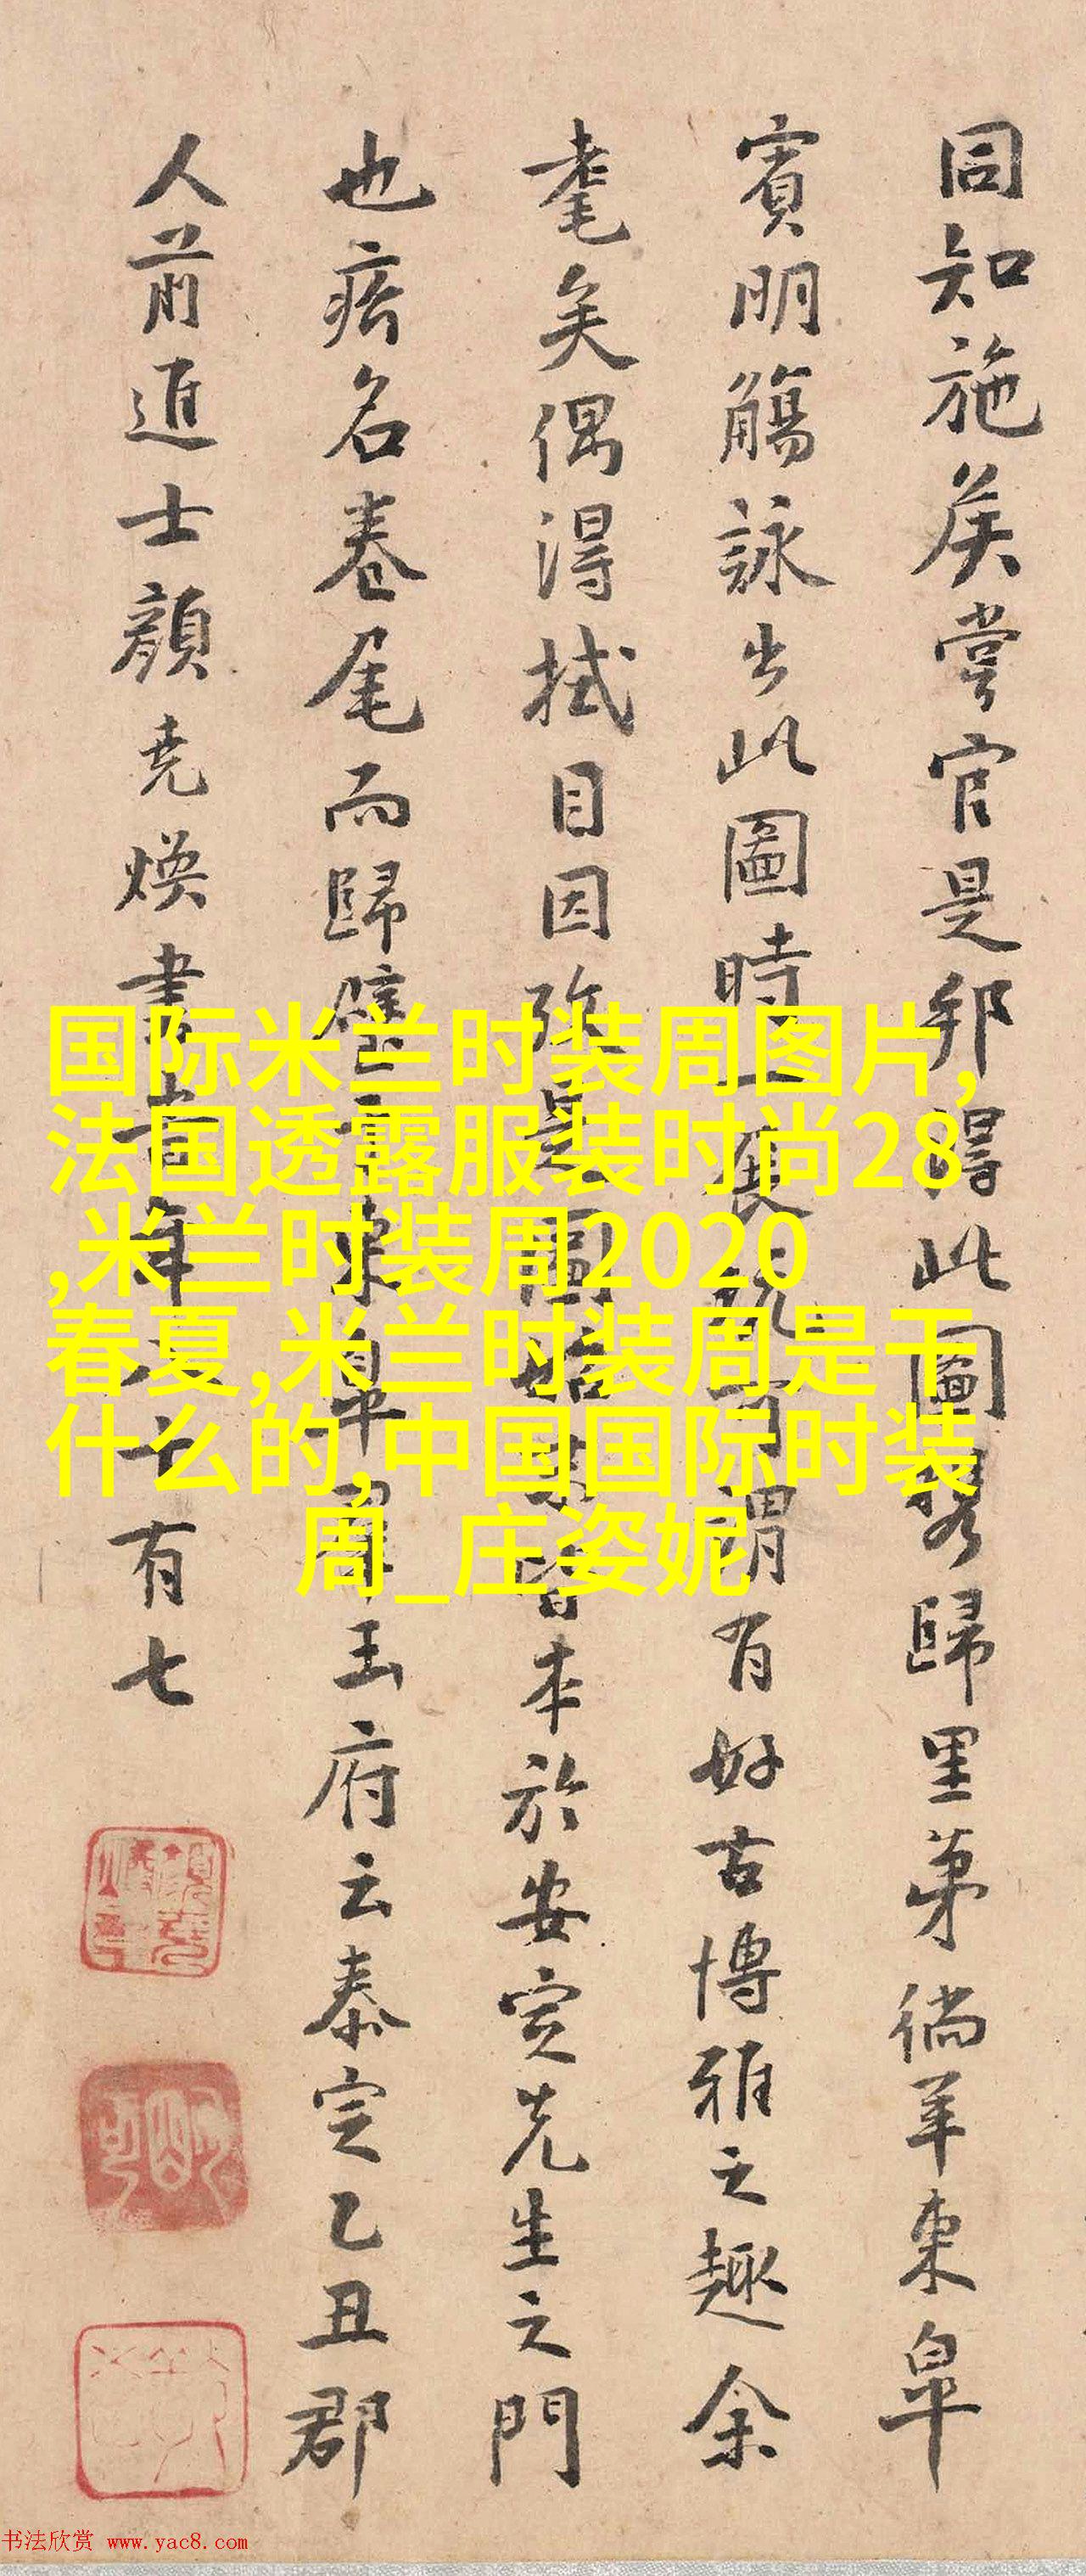 同知施侯嘗官是邦得此圖携歸里第徜羊東皋
賓明觴詠出此圖時一展玩可謂有好古博雅之趣余
耄矣偶得拭目因弥是圖皆本於安定先生之門
也瘩名卷尾而歸璧于東皋君玉府云泰定乙丑郡
人前進士顏堯煥書 年八十有七
国际米兰时装周图片,
法国透露服装时尚28
,米兰时装周2020
春夏,米兰时装周是干
什么的,中国国际时装
周_庄姿妮
书法欣赏 www.yac8.com